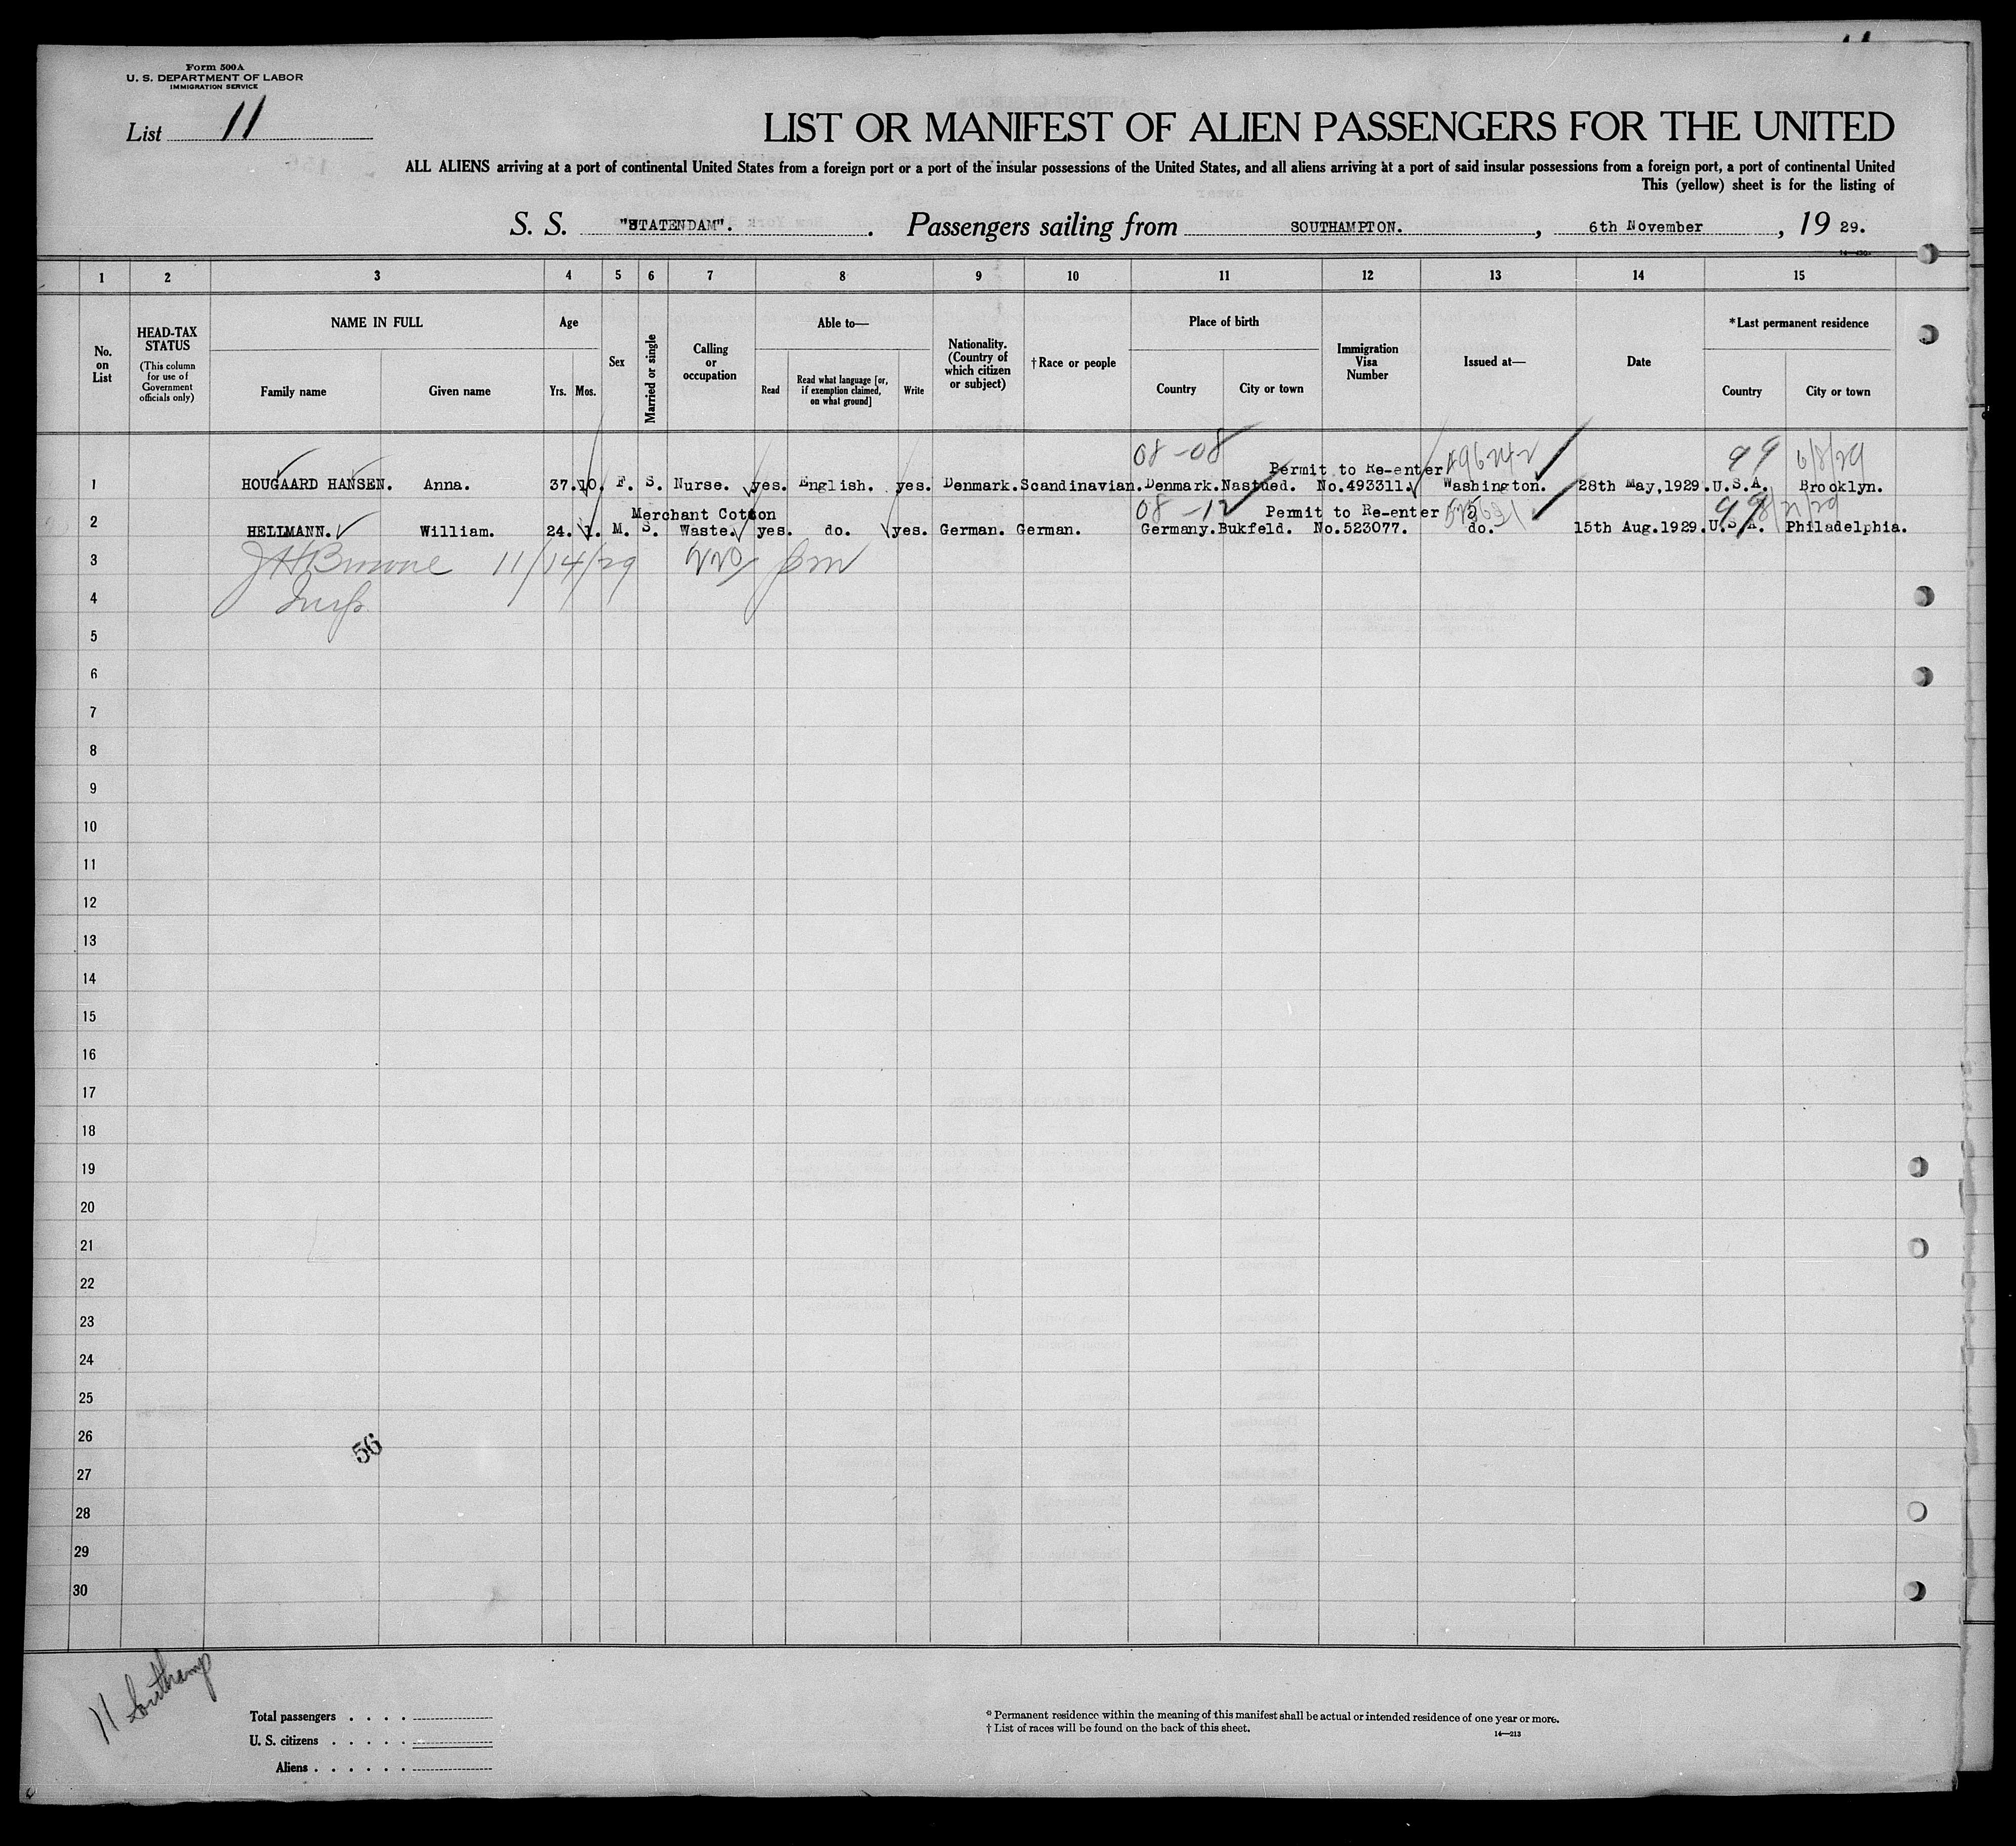 Form 500A
U. S. DEPARTMENT OF LABOR
IMMIGRATION SERVICE
List 11
LIST OR MANIFEST OF ALIEN PASSENGERS FOR THE UNITED
ALL ALIENS arriving at a port of continental United States from a foreign port or a port of the insular possessions of the United States, and all aliens arriving at a port of said insular possessions from a foreign port, a port of continental United
This (yellow) sheet is for the listing of
S. S. "STATENDAM". Passengers sailing from SOUTHAMPTON. , 6th November , 19 29.
1 2 3 4 5 6 7 8 9 10 11 12 13 14 15
No. on List
HEAD-TAX STATUS
(This column for use of Government officials only)
NAME IN FULL
Family name Given name
Age
Yrs. Mos.
Sex
Married or single
Calling or occupation
Able to—
Read
Read what language [or, if exemption claimed, on what ground]
Write
Nationality. (Country of which citizen or subject)
†Race or people
Place of birth
Country City or town
Immigration Visa Number
Issued at—
Date
*Last permanent residence
Country City or town
08-08 99 6/8/29
Permit to Re-enter
1 HOUGAARD HANSEN. Anna. 37. 10. F. S. Nurse. yes. English. yes. Denmark. Scandinavian. Denmark. Nastued. No.493311. Washington. 28th May,1929. U.S.A. Brooklyn.
08-12 Merchant Cotton Permit to Re-enter 99
2 HELLMANN. William. 24. 1. M. S. Waste. yes. do. yes. German. German. Germany. Bukfeld. No.523077. do. 15th Aug.1929. U.S.A. Philadelphia.
3 11/14/29 220 pm
4 Insp.
5
6
7
8
9
10
11
12
13
14
15
16
17
18
19
20
21
22
23
24
25
26
56
27
28
29
30
11 Southamp
Total passengers . . . .
U. S. citizens . . . . .
Aliens . . . . . .
* Permanent residence within the meaning of this manifest shall be actual or intended residence of one year or more.
† List of races will be found on the back of this sheet.
14—213